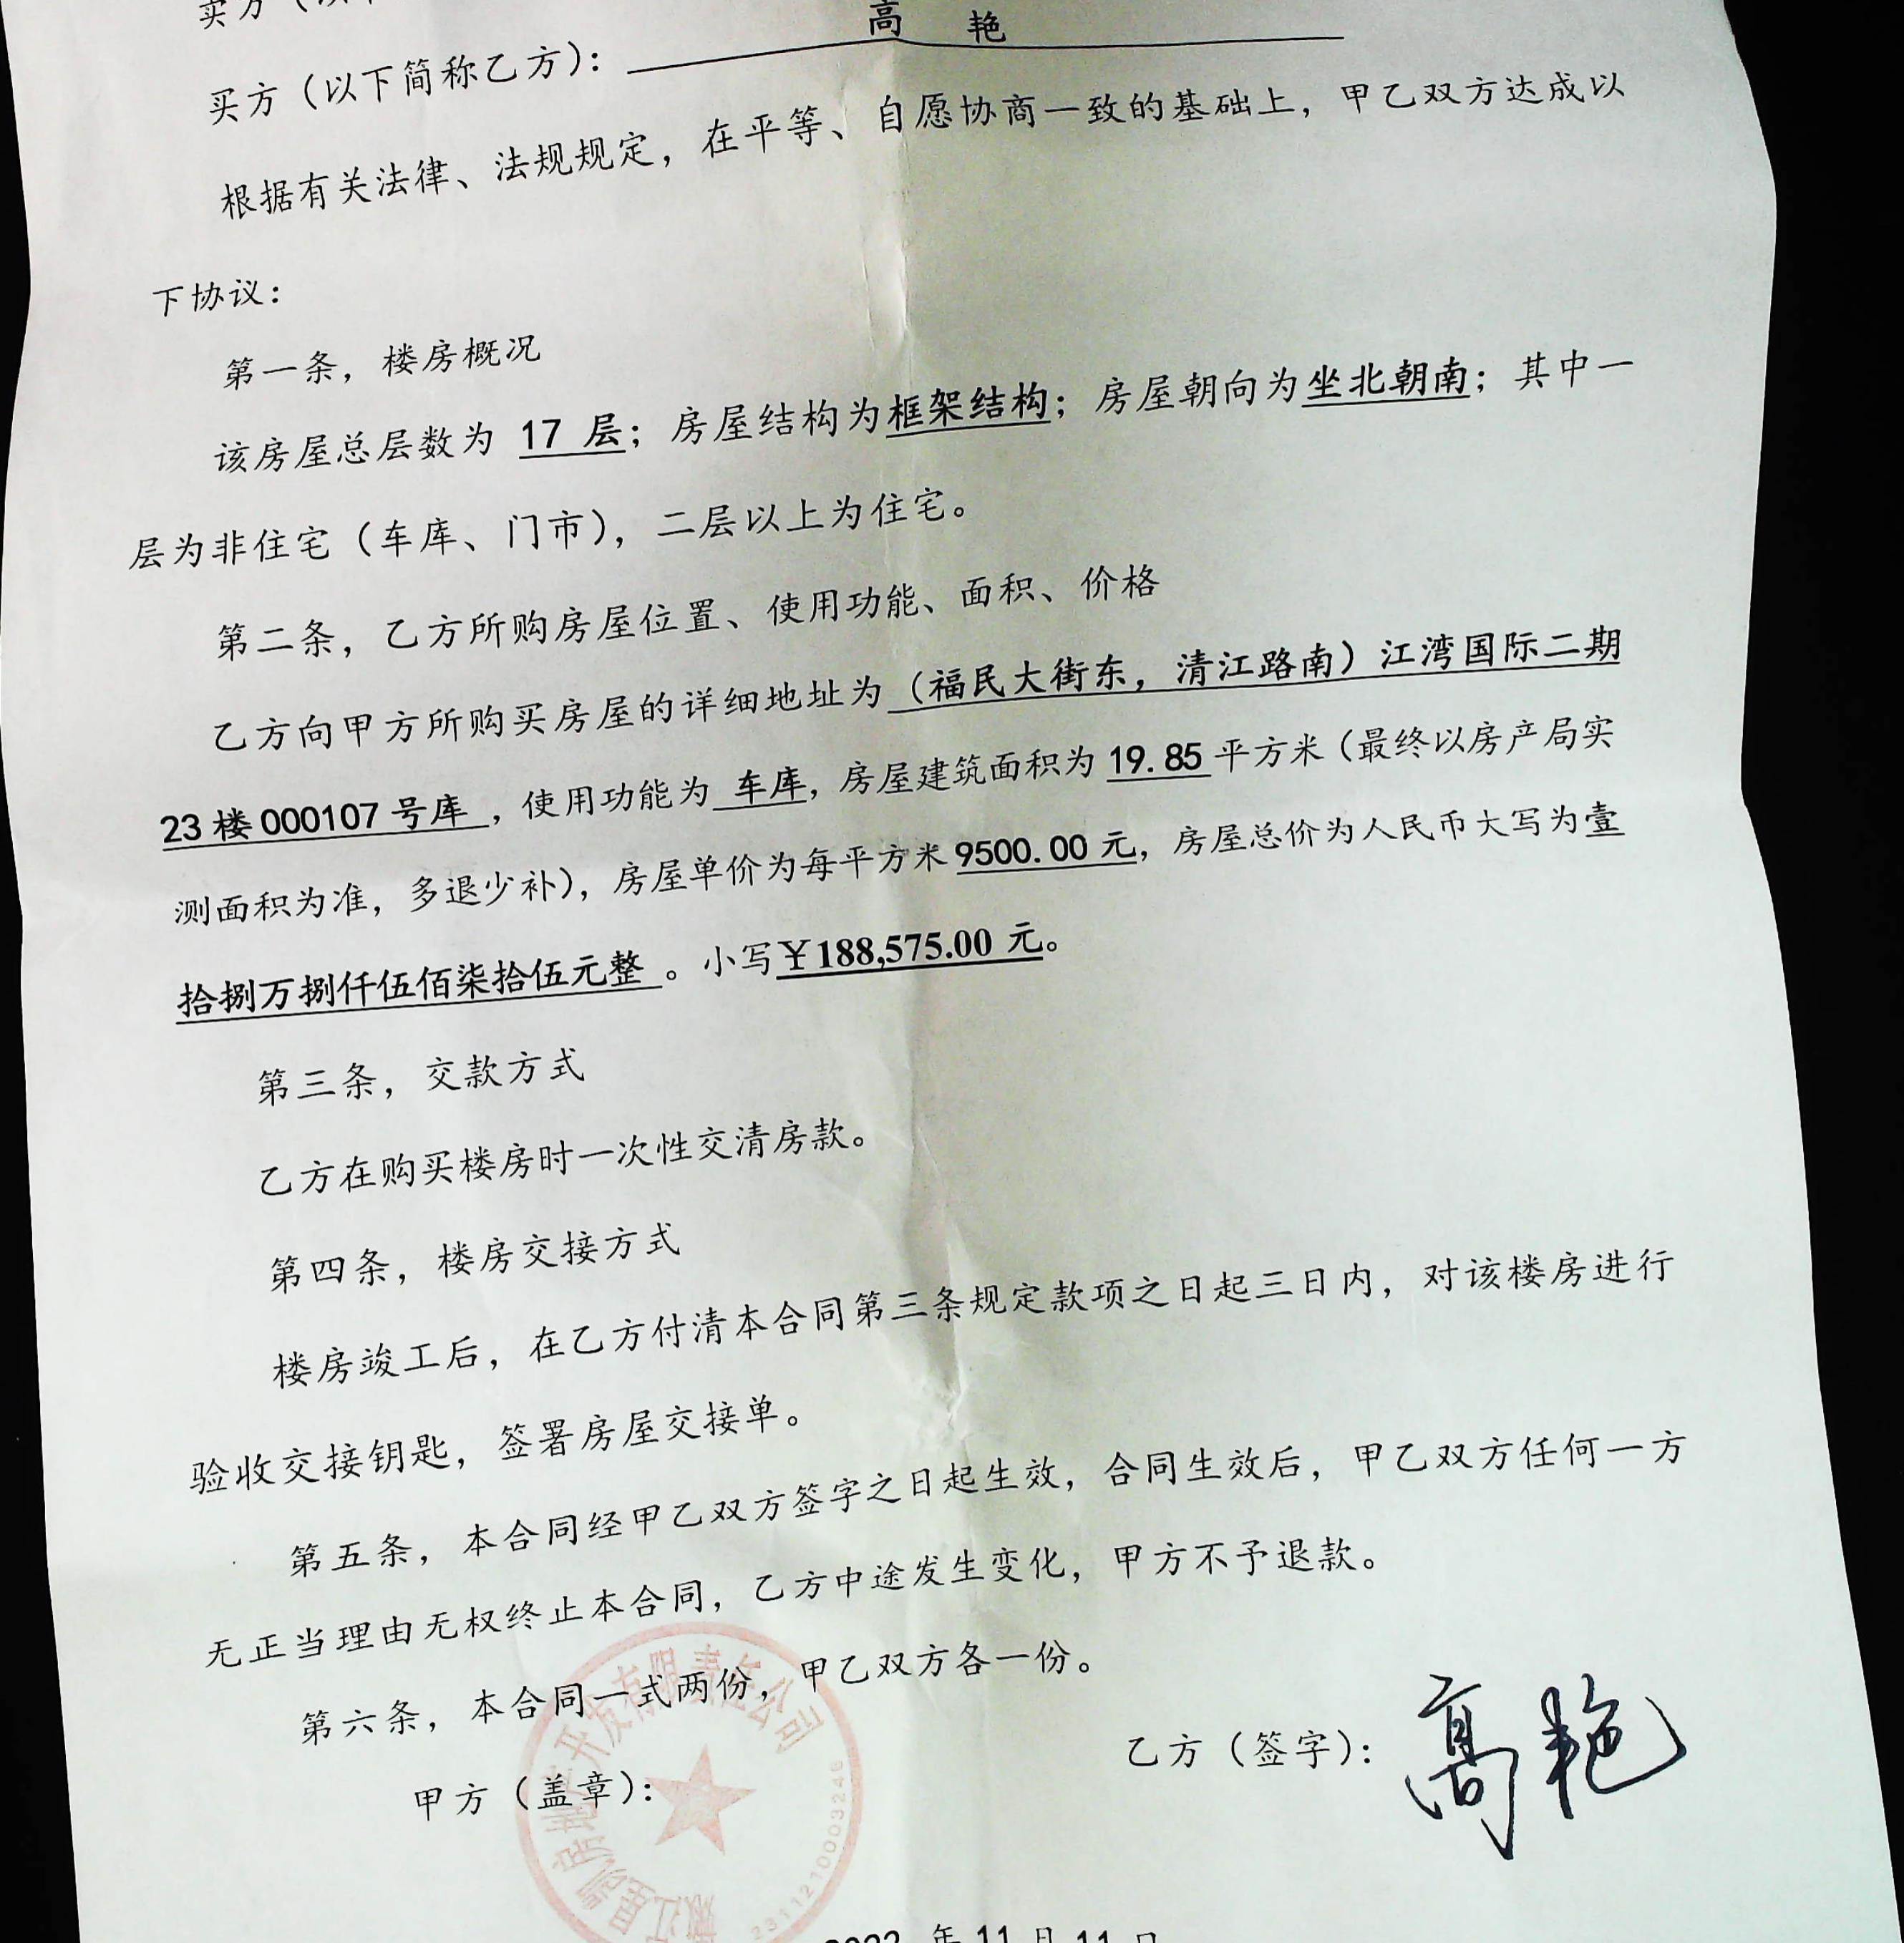 卖方（以下
买方（以下简称乙方）：高 艳
根据有关法律、法规规定，在平等、自愿协商一致的基础上，甲乙双方达成以
下协议：
第一条，楼房概况
该房屋总层数为 17 层；房屋结构为框架结构；房屋朝向为坐北朝南；其中一
层为非住宅（车库、门市），二层以上为住宅。
第二条，乙方所购房屋位置、使用功能、面积、价格
乙方向甲方所购买房屋的详细地址为（福民大街东，清江路南）江湾国际二期
23 楼 000107 号库 ，使用功能为 车库，房屋建筑面积为 19.85 平方米（最终以房产局实
测面积为准，多退少补），房屋单价为每平方米 9500.00 元，房屋总价为人民币大写为壹
拾捌万捌仟伍佰柒拾伍元整 。小写￥188,575.00 元。
第三条，交款方式
乙方在购买楼房时一次性交清房款。
第四条，楼房交接方式
楼房竣工后，在乙方付清本合同第三条规定款项之日起三日内，对该楼房进行
验收交接钥匙，签署房屋交接单。
第五条，本合同经甲乙双方签字之日起生效，合同生效后，甲乙双方任何一方
无正当理由无权终止本合同，乙方中途发生变化，甲方不予退款。
第六条，本合同一式两份，甲乙双方各一份。
甲方（盖章）：
乙方（签字）：高艳
房地产开发有限责任公司
2311210003246
年 11 月 11 日